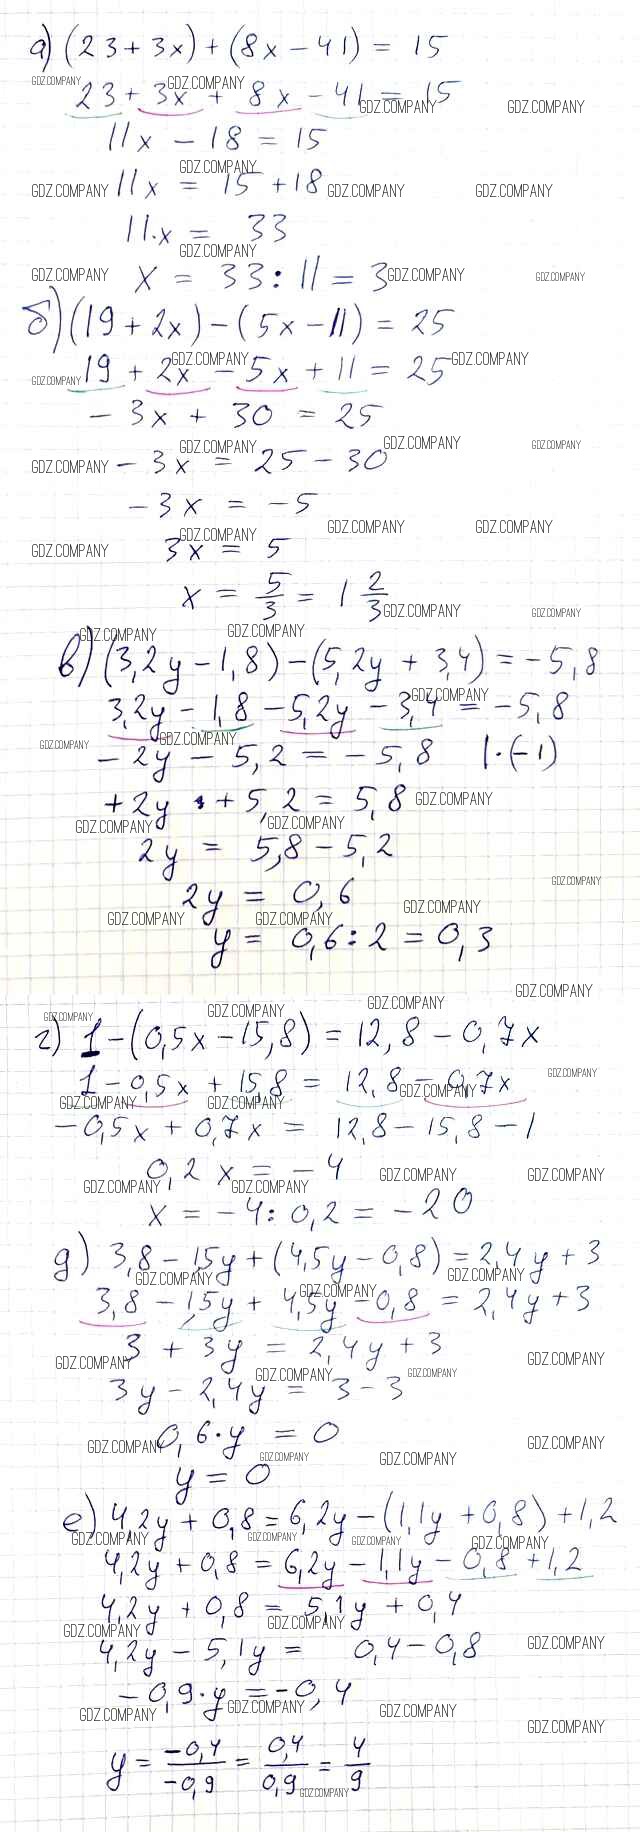 а) (23 + 3x) + (8x - 41) = 15
23 + 3x + 8x - 41 = 15
11x - 18 = 15
11x = 15 + 18
11·x = 33
x = 33 : 11 = 3
б) (19 + 2x) - (5x - 11) = 25
19 + 2x - 5x + 11 = 25
- 3x + 30 = 25
- 3x = 25 - 30
- 3x = - 5
3x = 5
x = 5/3 = 1 2/3
в) (3,2y - 1,8) - (5,2y + 3,4) = - 5,8
3,2y - 1,8 - 5,2y - 3,4 = - 5,8
- 2y - 5,2 = - 5,8 |·(-1)
+2y + 5,2 = 5,8
2y = 5,8 - 5,2
2y = 0,6
y = 0,6 : 2 = 0,3
г) 1 - (0,5x - 15,8) = 12,8 - 0,7x
1 - 0,5x + 15,8 = 12,8 - 0,7x
- 0,5x + 0,7x = 12,8 - 15,8 - 1
0,2 x = - 4
x = - 4 : 0,2 = - 20
д) 3,8 - 1,5y + (4,5y - 0,8) = 2,4y + 3
3,8 - 1,5y + 4,5y - 0,8 = 2,4y + 3
3 + 3y = 2,4y + 3
3y - 2,4y = 3 - 3
0,6·y = 0
y = 0
е) 4,2y + 0,8 = 6,2y - (1,1y + 0,8) + 1,2
4,2y + 0,8 = 6,2y - 1,1y - 0,8 + 1,2
4,2y + 0,8 = 5,1y + 0,4
4,2y - 5,1y = 0,4 - 0,8
- 0,9·y = - 0,4
y = -0,4/-0,9 = 0,4/0,9 = 4/9
GDZ.COMPANY